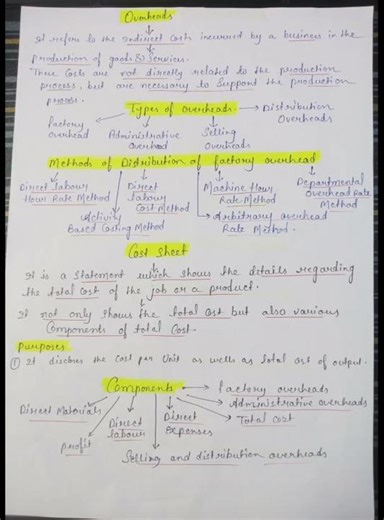 Overheads
It refers to the indirect costs incurred by a business in the
production of goods & services.
These costs are not directly related to the production
process, but are necessary to support the production
process.
Types of overheads
Distribution
Overheads
Factory
overhead
Administrative
overhead
Selling
overheads
Methods of Distribution of factory overhead
Direct labour
Hour Rate Method
Direct
labour
Cost Method
Machine Hour
Rate Method
Departmental
Overhead Rate
Method
Activity
Based Costing Method
Arbitrary overhead
Rate Method.
Cost Sheet
It is a statement which shows the details regarding
the total cost of the job or a product.
It not only shows the total cost but also various
Components of total Cost.
Purposes
① It discloses the Cost per Unit as well as total cost of output.
Components
factory overheads
Administrative overheads
Total cost
Direct Materials
Direct
labour
Direct
expenses
profit
Selling and distribution overheads